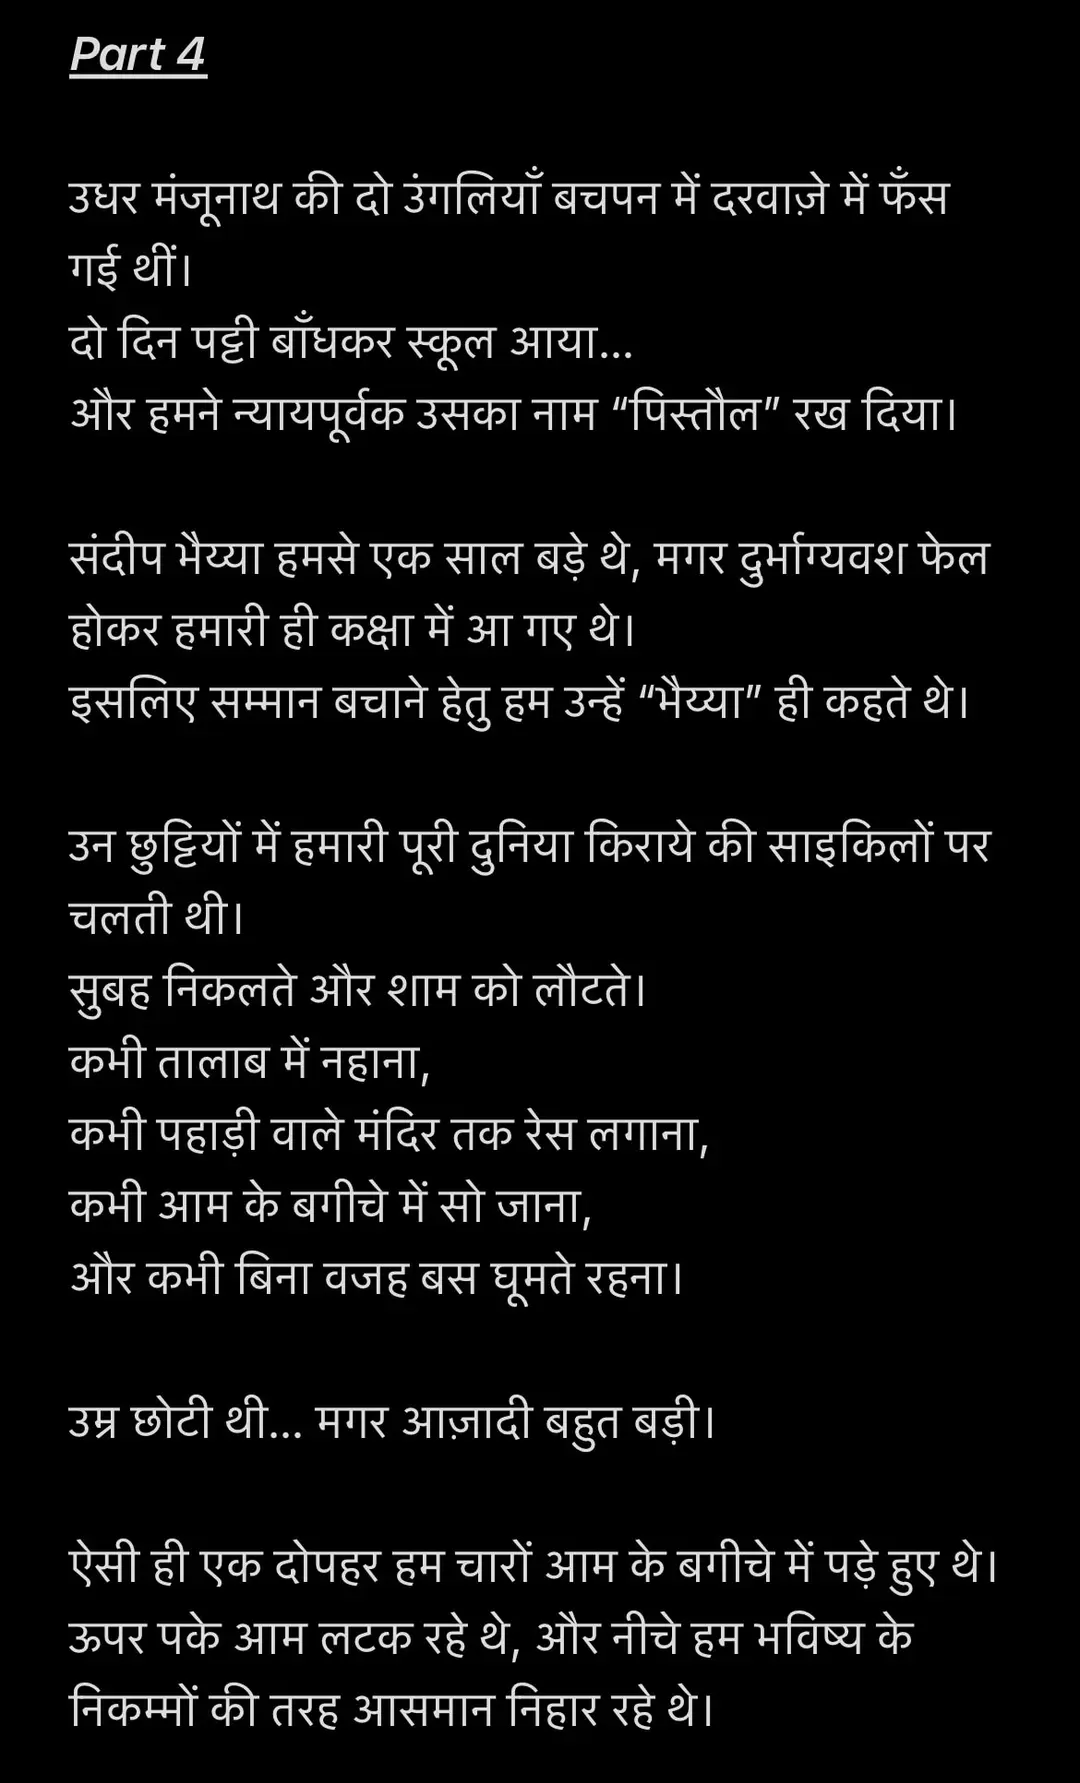 Part 4
उधर मंजूनाथ की दो उंगलियाँ बचपन में दरवाज़े में फँस
गई थीं।
दो दिन पट्टी बाँधकर स्कूल आया...
और हमने न्यायपूर्वक उसका नाम “पिस्तौल” रख दिया।
संदीप भैय्या हमसे एक साल बड़े थे, मगर दुर्भाग्यवश फेल
होकर हमारी ही कक्षा में आ गए थे।
इसलिए सम्मान बचाने हेतु हम उन्हें “भैय्या” ही कहते थे।
उन छुट्टियों में हमारी पूरी दुनिया किराये की साइकिलों पर
चलती थी।
सुबह निकलते और शाम को लौटते।
कभी तालाब में नहाना,
कभी पहाड़ी वाले मंदिर तक रेस लगाना,
कभी आम के बगीचे में सो जाना,
और कभी बिना वजह बस घूमते रहना।
उम्र छोटी थी... मगर आज़ादी बहुत बड़ी।
ऐसी ही एक दोपहर हम चारों आम के बगीचे में पड़े हुए थे।
ऊपर पके आम लटक रहे थे, और नीचे हम भविष्य के
निकम्मों की तरह आसमान निहार रहे थे।